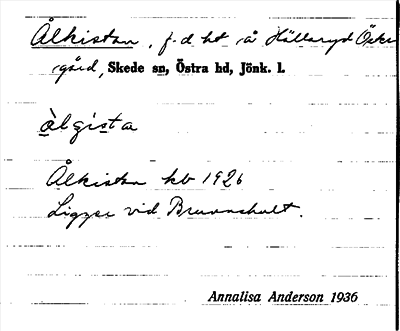 Ålkistan, f.d. lht å Hällaryd Öster-
gård, Skede sn, Östra hd, Jönk. l.
àlgista
Ålkistan kb 1926
Ligger vid Brunnshult.
Annalisa Anderson 1936